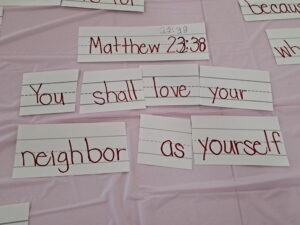 because
Matthew 23:38
You shall love your
neighbor as yourself